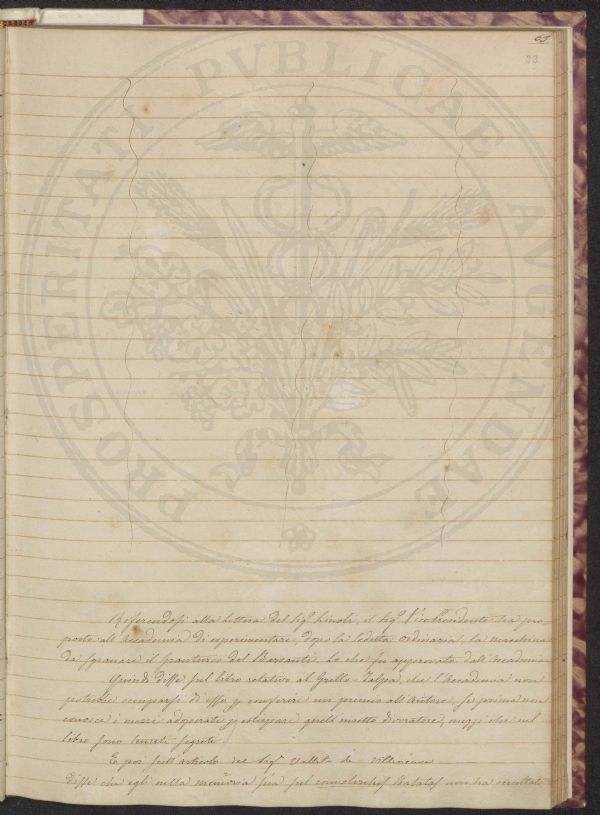 63
33
PROSPERITATI PVBLICAE AVGENDAE
Riferendosi alla lettera del Sigr Linoli, il Sigr VicePresidente ha pro=
posto all'Accademia di esperimentare, dopo la seduta ordinaria, la macchina
da sgranare il franturco del Bersanti. Lo che fu approvato dall'Accademia
Quindi disse sul libro relativo al Grillo-Talpa, che l'Accademia non
potrebbe occuparsi di esso p conferire un premio all'Autore, se prima non
conosca i mezzi adoperati p estirpare quell'insetto divoratore, mezzi che nel
libro sono tenuti segreti.
E poi sull'articolo del Sigr Vallet de Villeneuve
disse che egli nella memoria sua sul convolvulus Batatas non ha